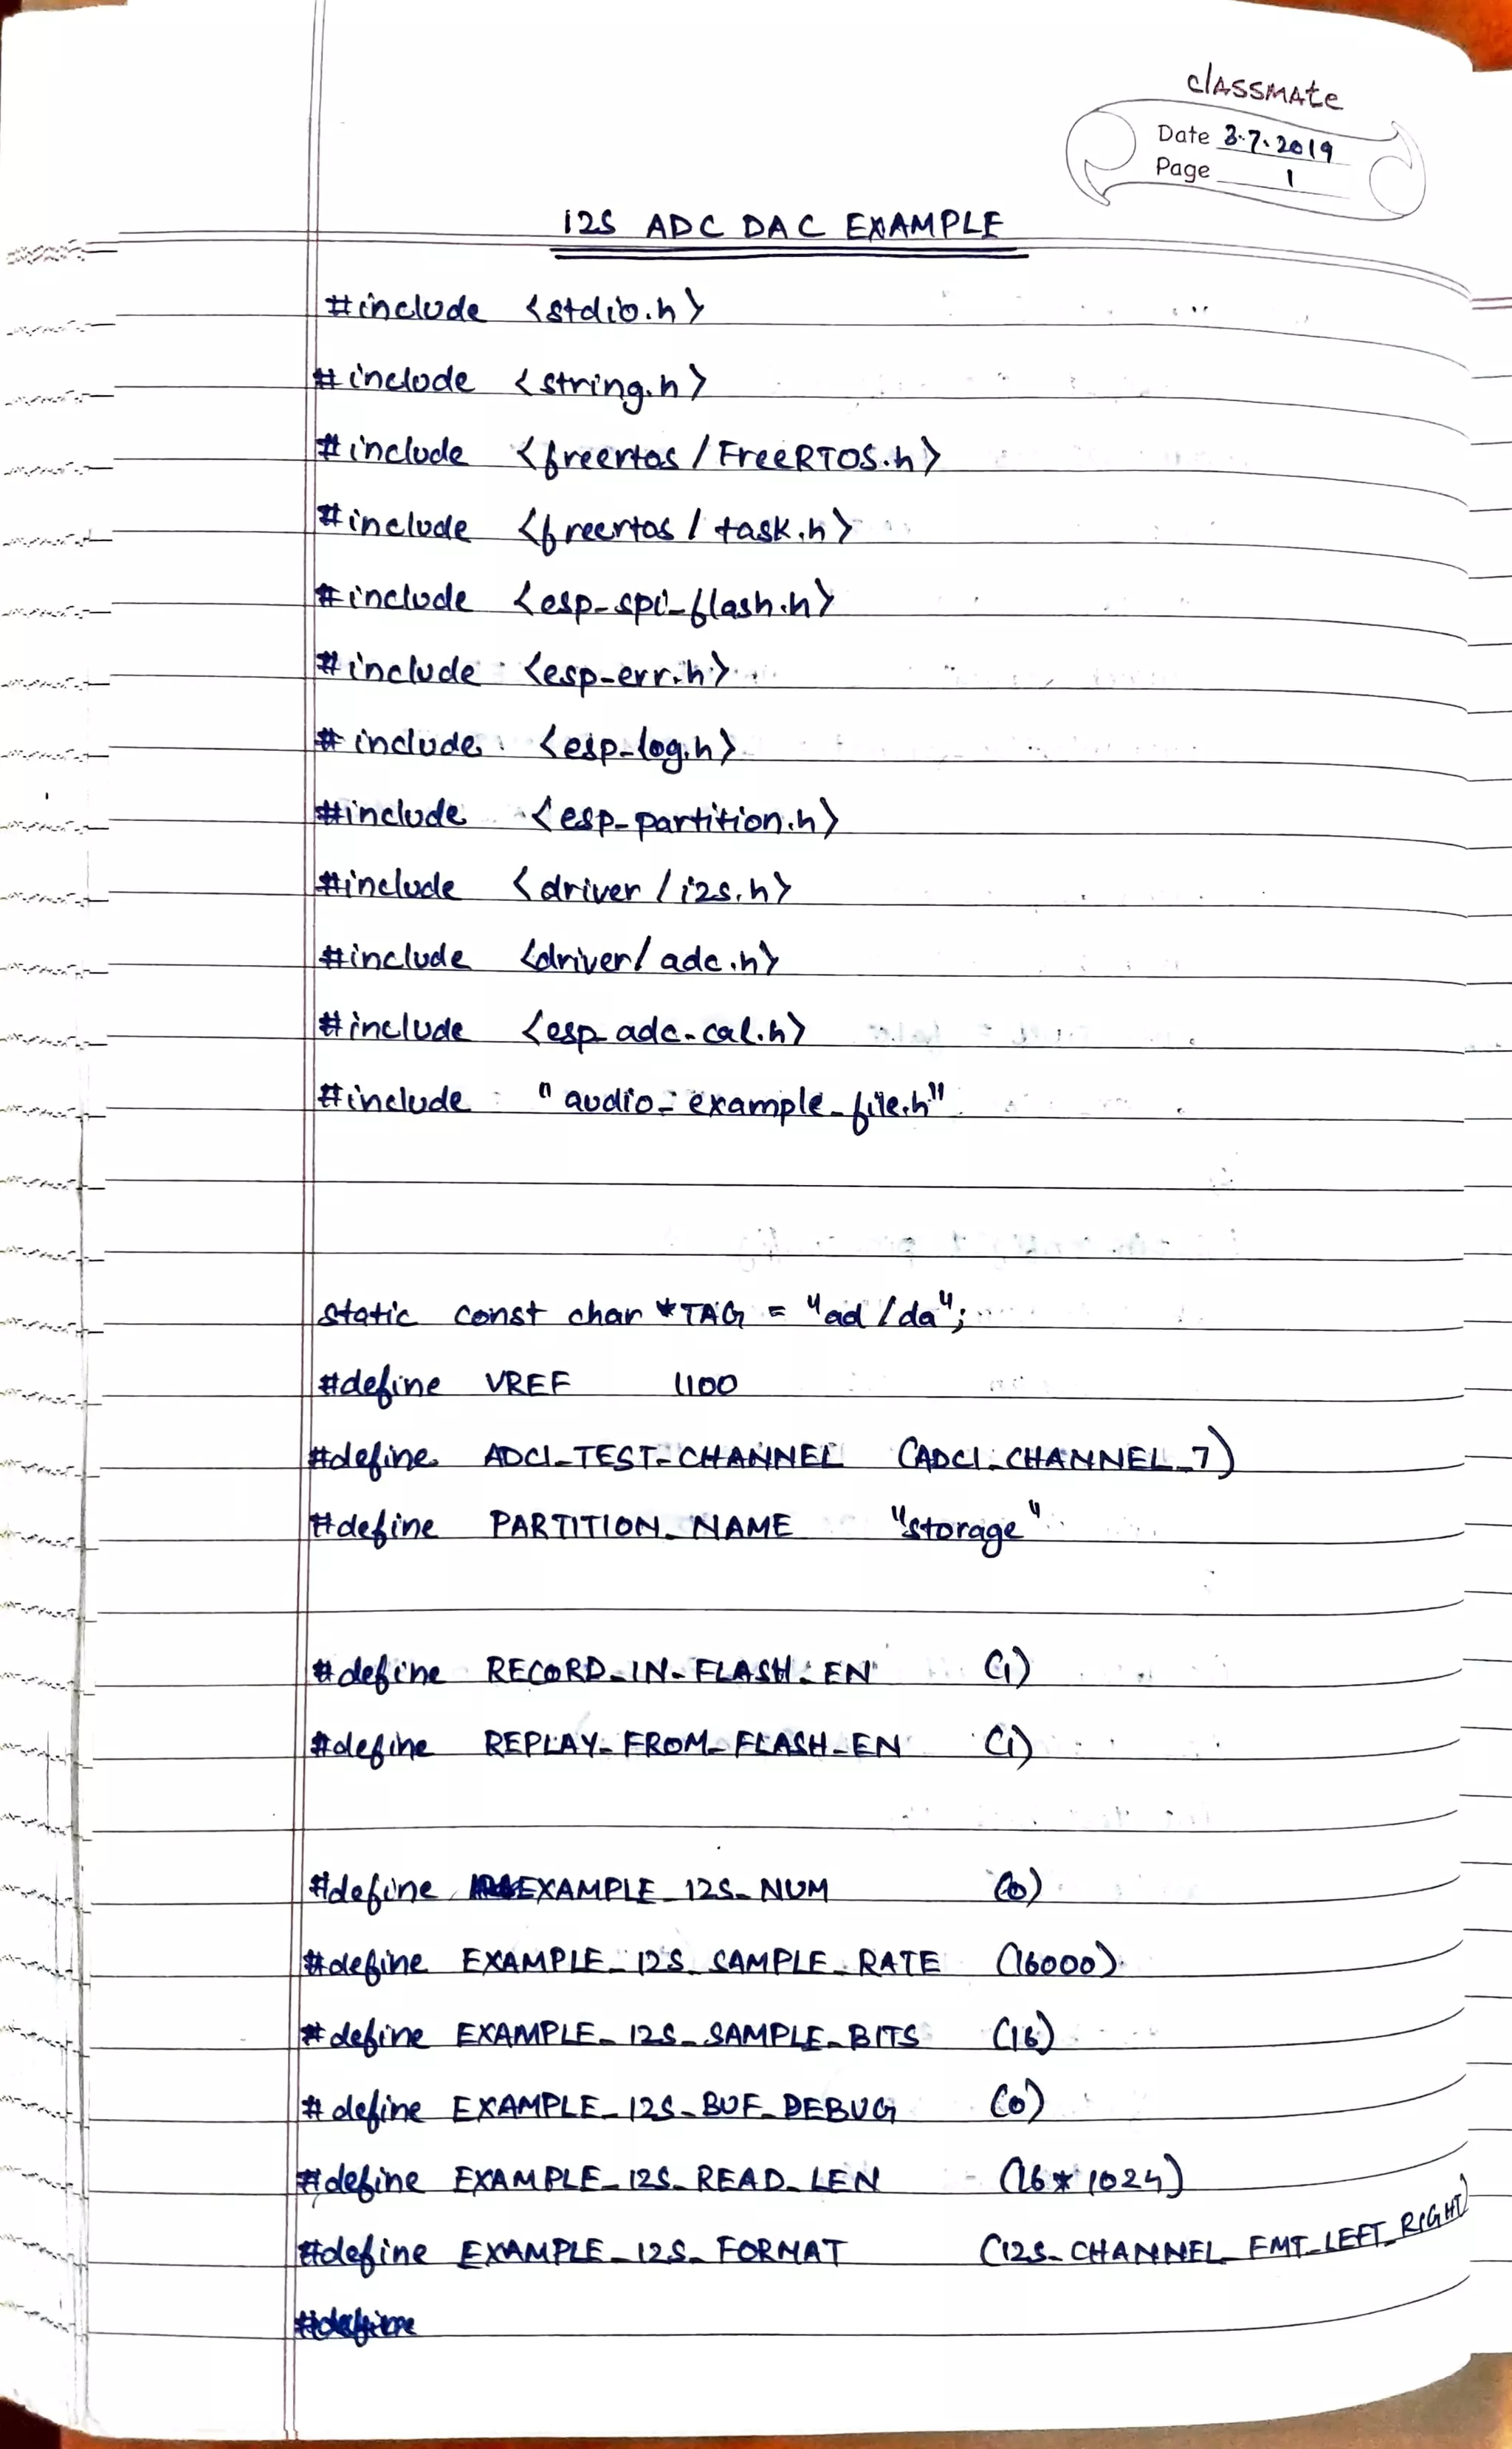 classmate
Date 3.7.2019
Page 1
I2S ADC DAC EXAMPLE
#include <stdio.h>
#include <string.h>
#include <freertos/FreeRTOS.h>
#include <freertos/task.h>
#include <esp_spi_flash.h>
#include <esp_err.h>
#include <esp_log.h>
#include <esp_partition.h>
#include <driver/i2s.h>
#include <driver/adc.h>
#include <esp_adc_cal.h>
#include "audio_example_file.h"
static const char *TAG = "ad/da";
#define VREF 1100
#define ADC1_TEST_CHANNEL (ADC1_CHANNEL_7)
#define PARTITION_NAME "storage"
#define RECORD_IN_FLASH_EN (1)
#define REPLAY_FROM_FLASH_EN (1)
#define EXAMPLE_I2S_NUM (0)
#define EXAMPLE_I2S_SAMPLE_RATE (16000)
#define EXAMPLE_I2S_SAMPLE_BITS (16)
#define EXAMPLE_I2S_BUF_DEBUG (0)
#define EXAMPLE_I2S_READ_LEN (16*1024)
#define EXAMPLE_I2S_FORMAT (I2S_CHANNEL_FMT_LEFT_RIGHT)
#define